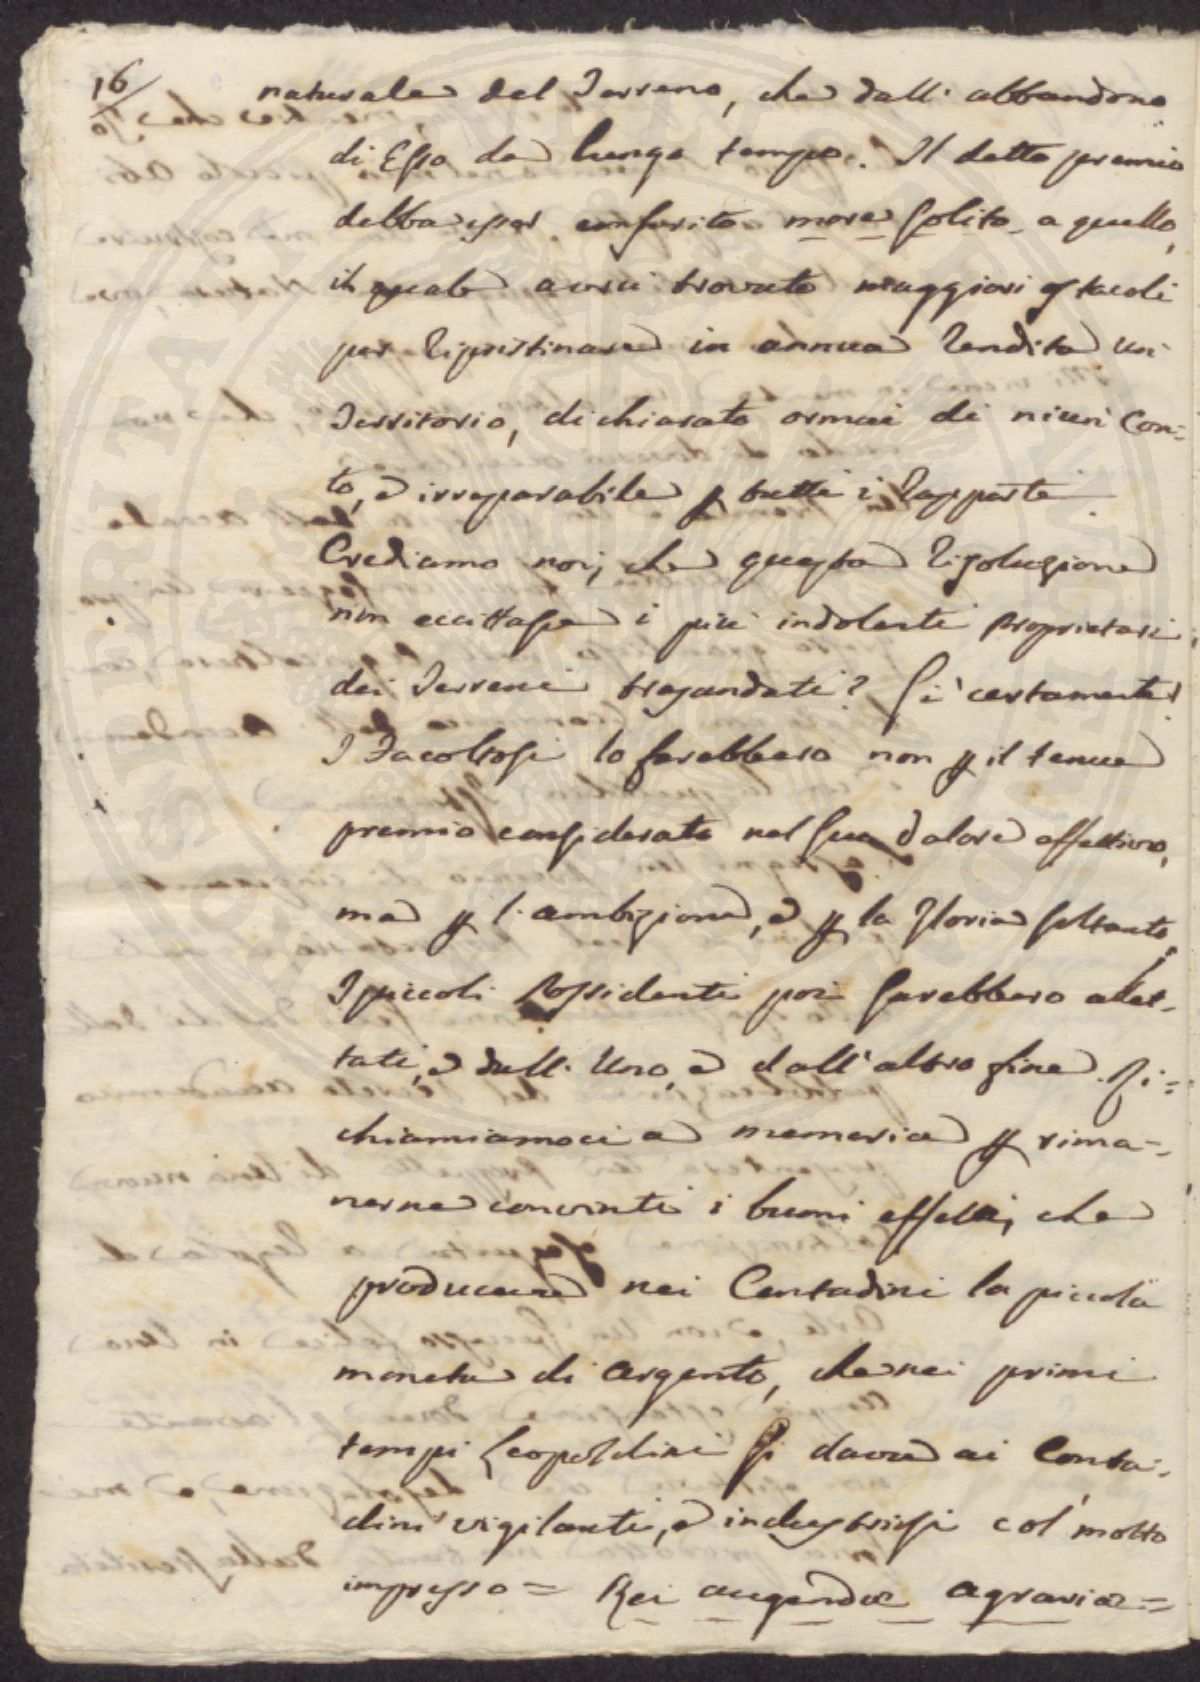 16
naturale del Terreno, che dall' abbandono
di Esso da lungo tempo. Il detto premio
debba esser conferito more solito a quello,
il quale avrà trovato maggiori ostacoli
per ripristinare in annua rendita un
Territorio, dichiarato ormai di niun Con=
to, e irreparabile p tutti i rapporti.
Crediamo noi, che questa risoluzione
non eccittasse i più indolenti Proprietari
dei Terreni trasandati? Sì certamente!
I Facoltosi lo farebbero non p il tenue
premio considerato nel suo Valore effettivo,
ma p l'ambizione, e p la Gloria soltanto,
I piccoli Possidenti poi sarebbero allet=
tati, e dall' Uno, e dall' altro fine. Ri=
chiamiamoci a memoria p rima=
nerne convinti i buoni effetti, che
produceva nei Contadini la piccola
moneta di Argento, che nei primi
tempi Leopoldini si dava ai Conta=
dini vigilanti, e industriosi col motto
impresso = Rei augendae agrariae =